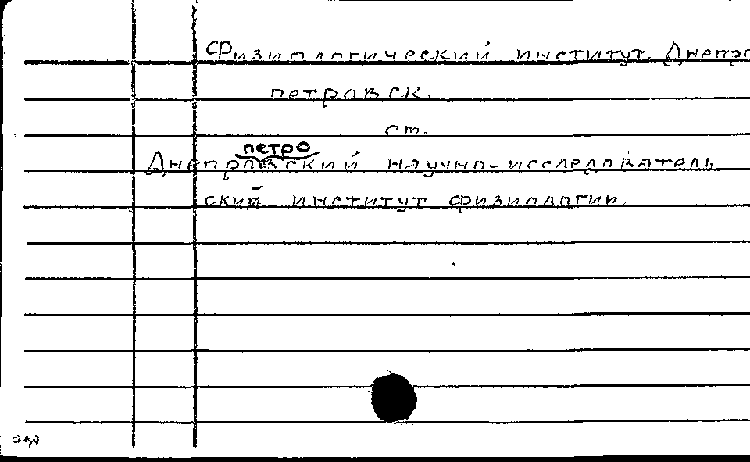 Физиологический институт. Днепро
петровск.
см.
петро
Днепровский научно-исследователь
ский институт физиологии.